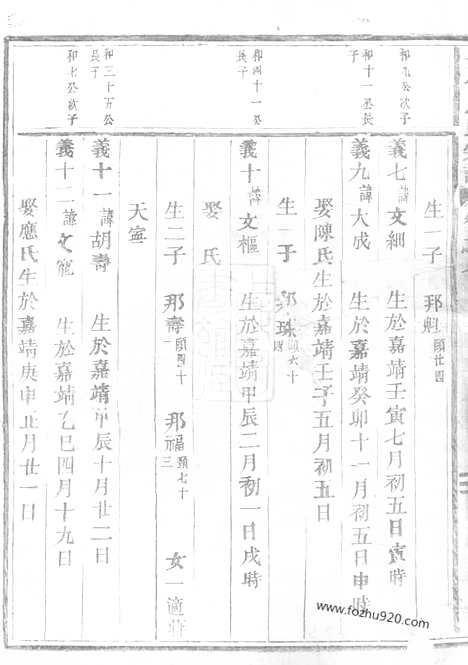 生一子 邦魁 頤廿四
和九公次子
義七 諱文細 生於嘉靖壬寅七月初五日寅時
和十一公長子
義九 諱大成 生於嘉靖癸卯十一月初五日申時
娶陳氏生於嘉靖壬子五月初五日
生一子 邦珠 六十四
和四十一公長子
義十 諱文樞 生於嘉靖甲辰二月初一日戌時
娶 氏
生二子 邦壽 頤四十一 邦福 頤七十三 女一適
天寧
和三十五公長子
義十一 諱胡壽 生於嘉靖甲辰十月廿二日
和七公次子
義十二 諱文寵 生於嘉靖乙巳四月十九日
娶應氏生於嘉靖庚申正月廿一日
www.fozhu920.com